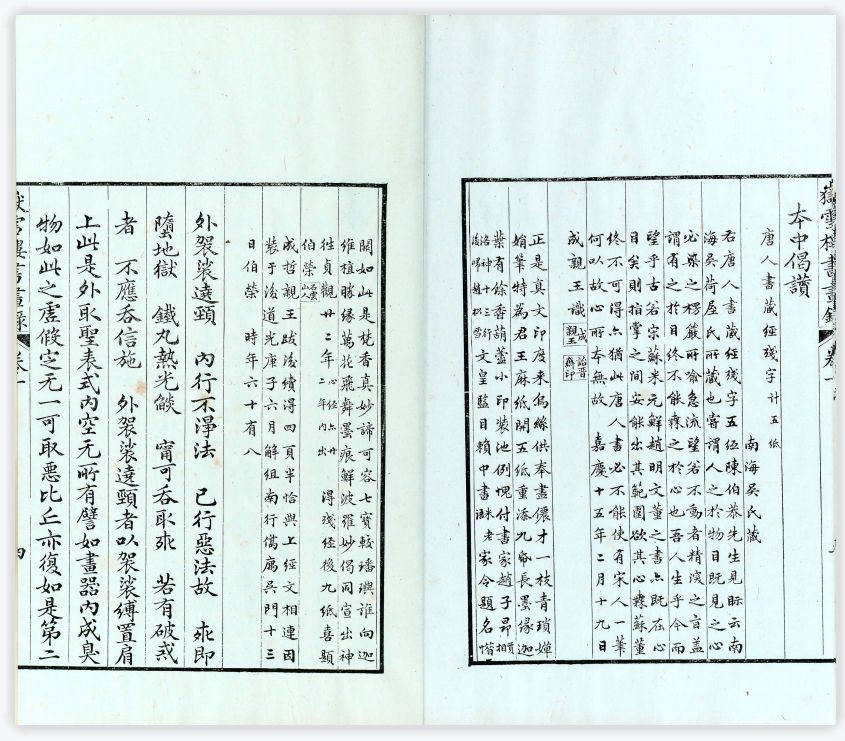 嶽雪樓書畫錄 卷一
本中偈讚
唐人書藏經殘字 計五紙
南海吳氏藏
右唐人書藏經殘字五紙陳伯恭先生見眎云南
海吳荷屋氏所藏也嘗謂人之於物目既見之心
必染之楞嚴所喻急流望若不高者精深之言蓋
謂有之於目終不能棄之於心也吾人生乎今而
望乎古若宗蘇米元鮮趙明文董之書亦既在心
目矣則指掌之間安能出其範圍欲其心棄蘇董
終不可得亦猶此唐人書必不能使有宋人一筆
何以故心所本無故 嘉慶十五年二月十九日
成親王識 成親王 詒晉齋印
正是真文印度來烏絲供奉畫儂才一枝青瑣嬋
娟筆特為君王麻紙開五紙重添九帋長墨緣迦
葉有餘香葫蘆小印裝池例愧付書家趙子昂
洛神十三行
文皇監目賴中書 老家令題名
關如此是梵香真妙諦可容七寶較璠璵誰向迦
維植勝緣萬花飛舞墨痕鮮波羅妙偈同宣出神
往貞觀廿二年 得殘經後九紙喜題
伯榮
成哲親王跋後續得四頁半恰與上經文相連因
裝于後道光庚子六月解組南行儻廡吳門十三
日伯榮 時年六十有八
外袈裟遶頸 內行不淨法 已行惡法故 死即
墮地獄 鐵丸熱光燄 甯可吞取死 若有破戒
者 不應吞信施 外袈裟遶頸者以袈裟縛置肩
上此是外取聖表式內空无所有譬如畫器內成臭
物如此之虛假定无一可取惡比丘亦復如是第二
嶽雪樓書畫錄 卷一
四